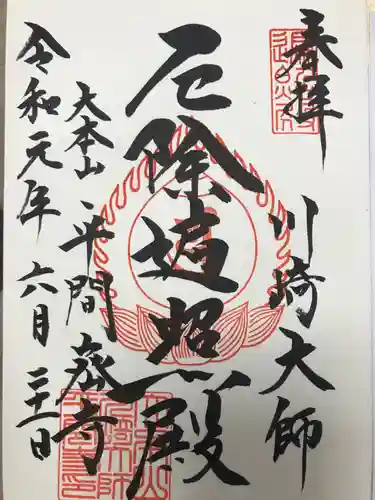 奉拝
川崎大師
厄除遍照殿
大本山 平間寺
令和元年 六月 二十一日